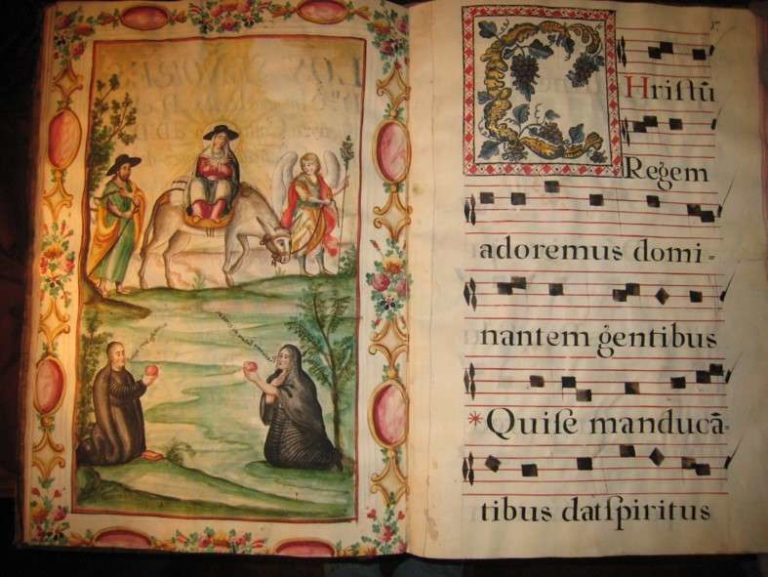 CHriſtū
Regem
adoremus domi-
nantem gentibus
*Quiſe manducā-
tibus datſpiritus